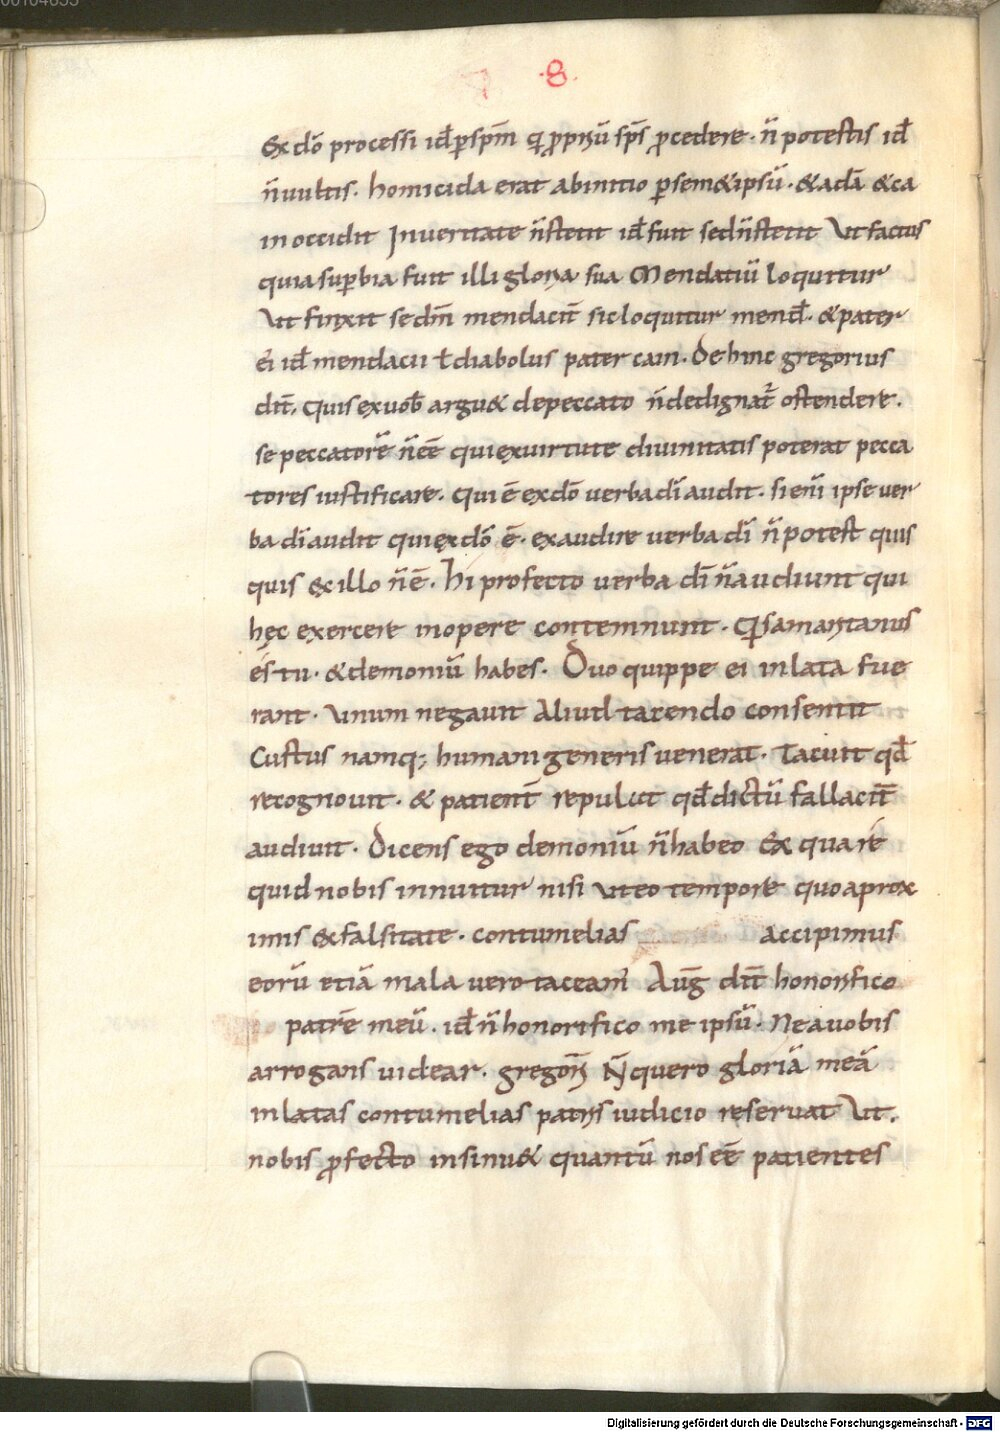 00104655
·8·
Ex dō processi id̄ ꝑ sp̄m q̄ ꝓpriū sp̄s ꝓcedere · n̄ potestis id̄
n̄ vultis · homicida erat abinitio ꝑ sem&ipsū · & adā & ca
in occidit Inveritate n̄ stetit id̄ fuit sed n̄ stetit Ut factus
quia suꝑbia fuit illi gloria sua Mendatiū loquitur
Ut finxit se dm̄ mendaciū sic loquitur mend̄ · & pater
ei id̄ mendacii ł diabolus pater cain · De hinc gregorius
dix̄ · Quis ex uob̄ argu& depeccato n̄ dedignat̄ ostendere ·
se peccatorē n̄ eē qui exuirtute diuinitatis poterat pecca
tores iustificare · Qui ē ex dō uerba dī audit · si eni ipse ver
ba dī audit qui ex dō ē · exaudire uerba dī n̄ potest quis
quis ex illo n̄ ē · hi profecto uerba dī n̄ audiunt qui
hęc exercere inopere contemnunt · Q̄ samaritanus
és tu · & demoniū habes · Duo quippe ei inlata fue
rant · unum negauit Aliud tacendo consentit
Custus namq; humani generis uenerat · Tacuit qd̄
recognouit · & patient̄ repulit qd̄ dictū fallacit̄
audiuit · Dicens ego demoniū n̄ habeo Ex qua re
quid nobis innuitur nisi ut eo tempore quo aprox
imis & falsitate · contumelias accipimus
eorū etiā mala uero taceam̄ Auḡ dix̄ honorifico
patrē meū · id̄ n̄ honorifico me ipsū · Ne a uobis
arrogans uidear · gregori N̄ quero gloriā meā
inlatas contumelias patris iudicio reseruat Ut ·
nobis ꝓfecto insinu& quantū nos eē patientes
Digitalisierung gefördert durch die Deutsche Forschungsgemeinschaft - DFG